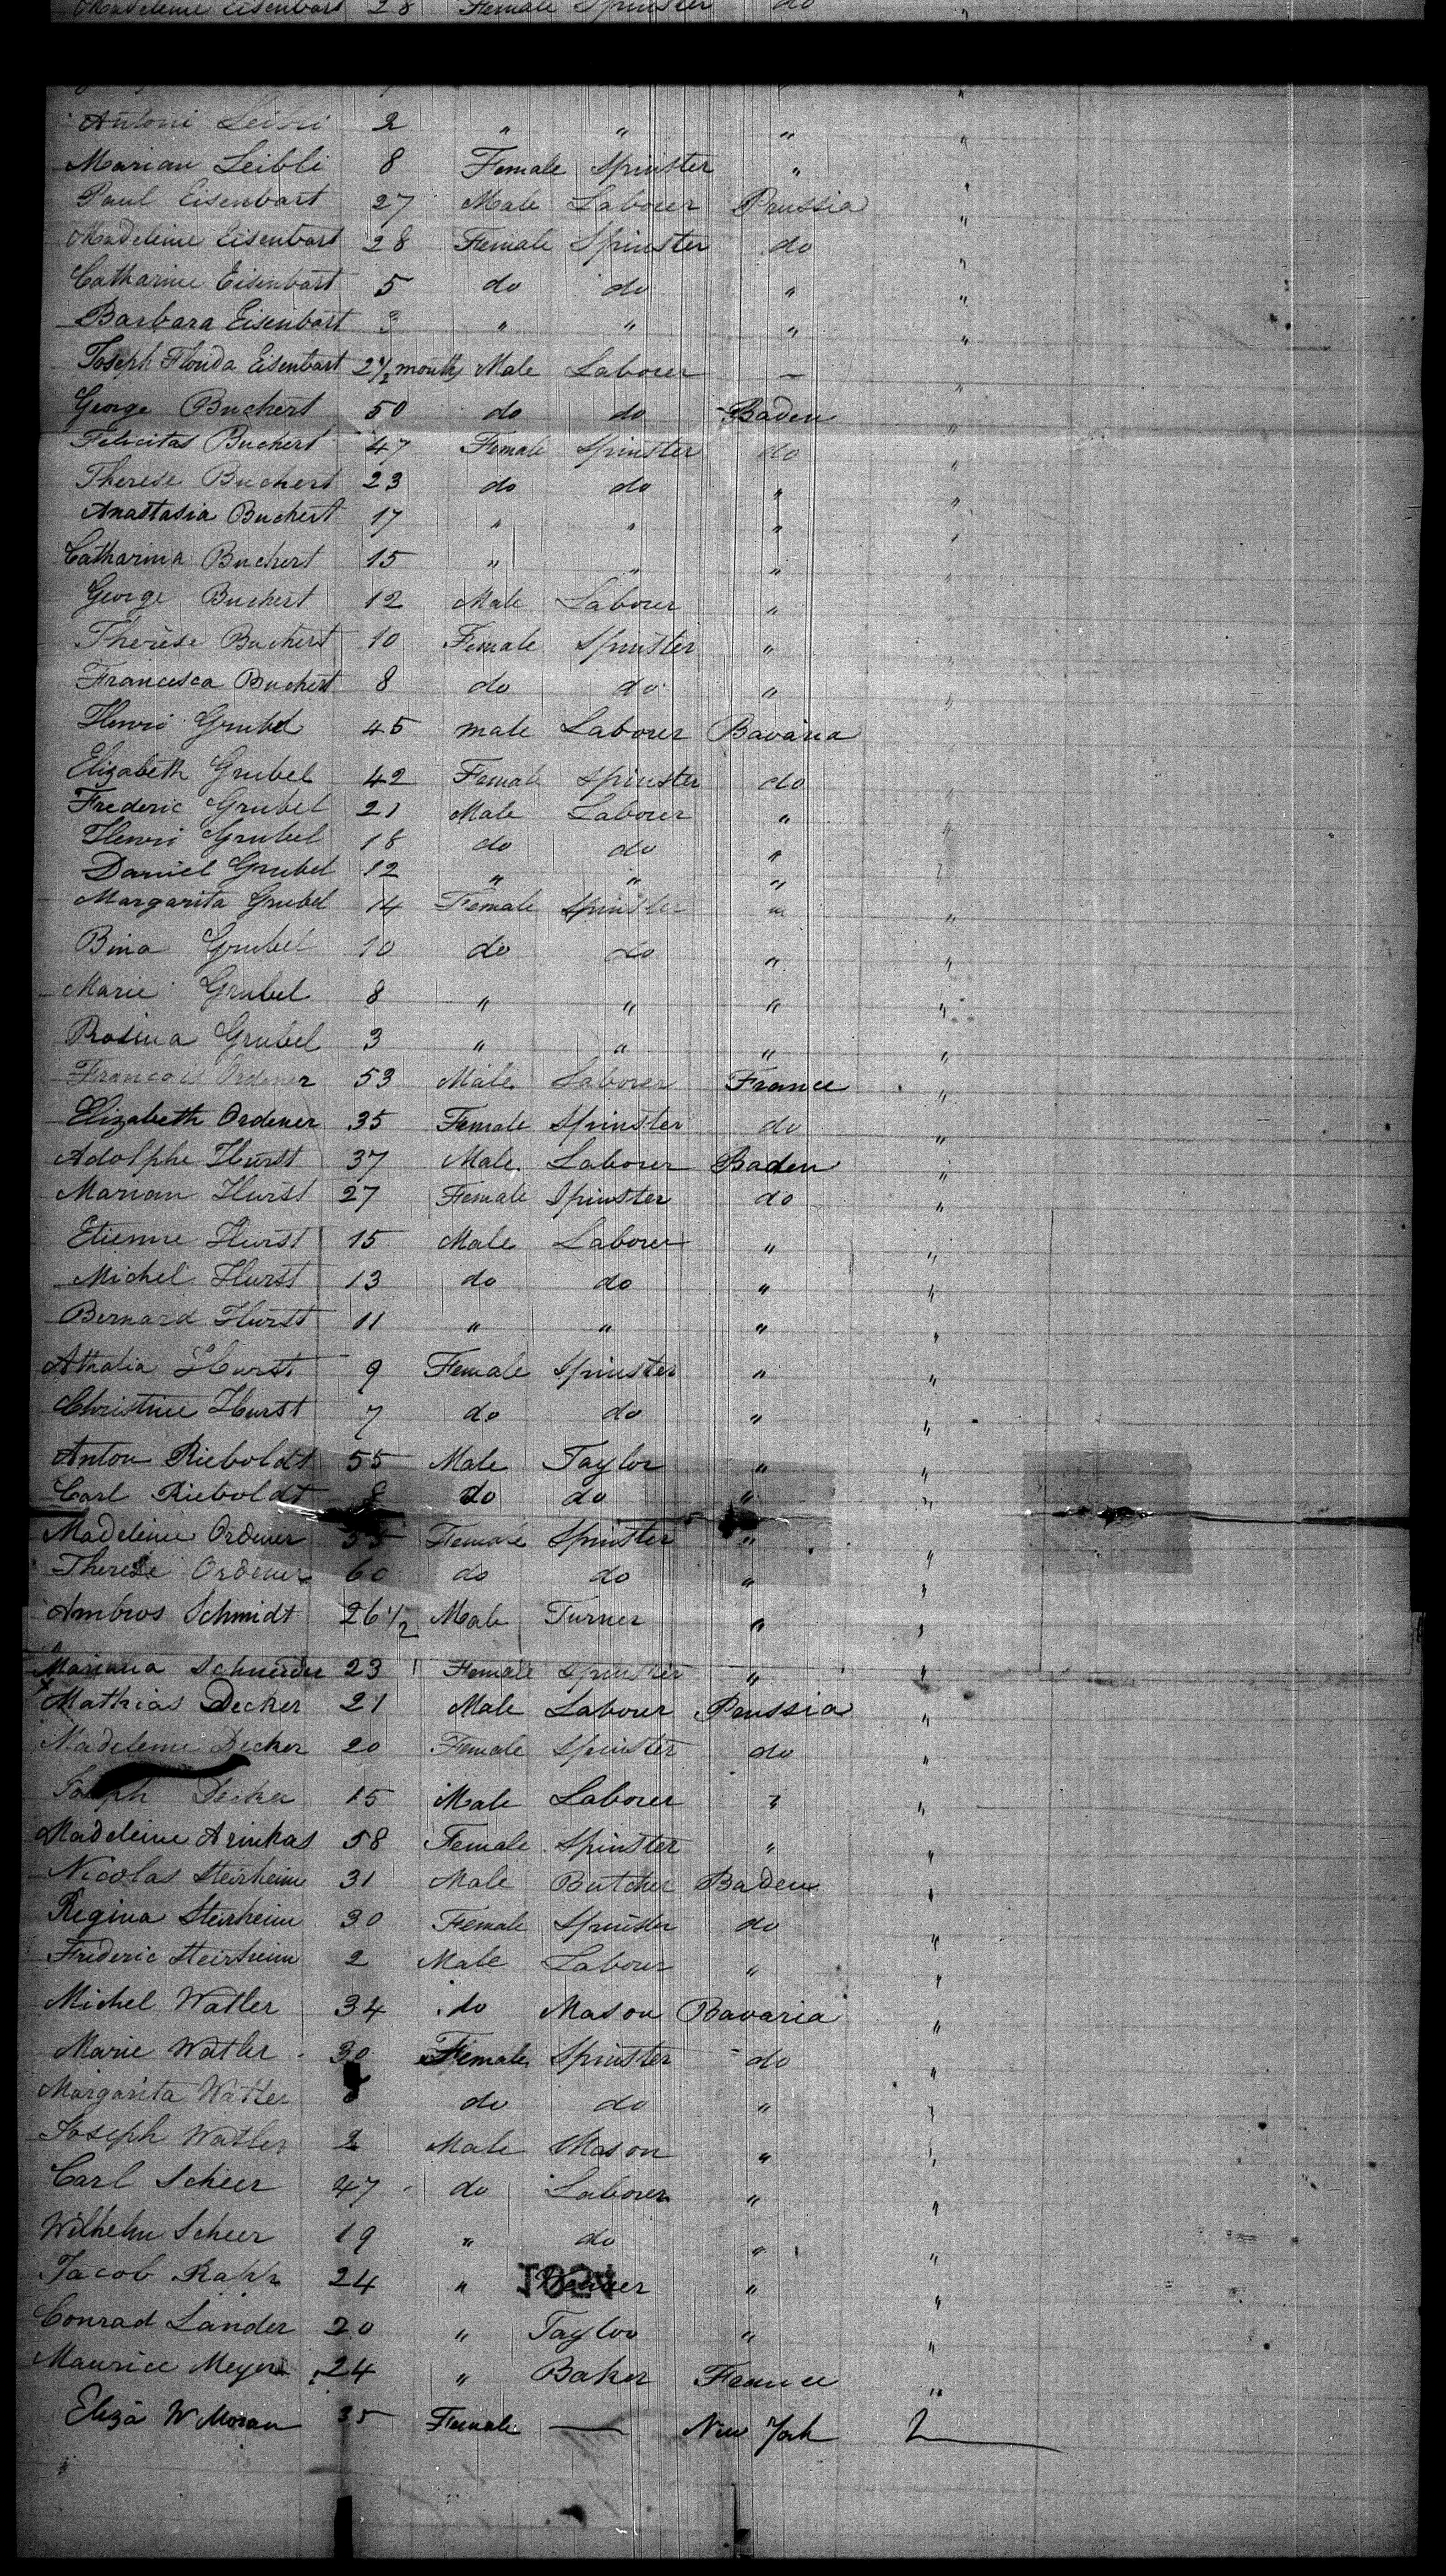 Madeleine Eisenbart 28 Female Spinster do "
Antoni Leibli 2 " " " "
Marian Leibli 8 Female Spinster " "
Paul Eisenbart 27 Male Laborer Prussia "
Madeleine Eisenbart 28 Female Spinster do "
Catharine Eisenbart 5 do do " "
Barbara Eisenbart 3 " " " "
Joseph Florida Eisenbart 2 1/2 months Male Laborer — "
George Buchert 50 do do Baden "
Felicitas Buchert 47 Female Spinster do "
Therese Buchert 23 do do " "
Anastasia Buchert 17 " " " "
Catharina Buchert 15 " " " "
George Buchert 12 Male Laborer " "
Thérèse Buchert 10 Female Spinster " "
Francesca Buchert 8 do do " "
Henri Grubel 45 male Laborer Bavaria "
Elizabeth Grubel 42 Female Spinster do "
Frederic Grubel 21 Male Laborer " "
Henri Grubel 18 do do " "
Daniel Grubel 12 " " " "
Margarita Grubel 14 Female Spinster " "
Bina Grubel 10 do do " "
Marie Grubel 8 " " " "
Rosina Grubel 3 " " " "
Francois Ordener 53 Male Laborer France "
Elizabeth Ordener 35 Female Spinster do "
Adolphe Hurst 37 Male Laborer Baden "
Marian Hurst 27 Female Spinster do "
Etienne Hurst 15 Male Laborer " "
Michel Hurst 13 do do " "
Bernard Hurst 11 " " " "
Athalia Hurst 9 Female Spinster " "
Christine Hurst 7 do do " "
Anton Rieboldt 55 Male Taylor " "
Carl Rieboldt 8 do do " "
Madeleine Ordener 35 Female Spinster " "
Therese Ordener 60 do do " "
Ambros Schmidt 26 1/2 Male Turner " "
Mariana Schneider 23 Female Spinster " "
x Mathias Decker 21 Male Laborer Prussia "
Madeleine Decker 20 Female Spinster do "
Joseph Decker 15 Male Laborer " "
Madeleine Arinkas 58 Female Spinster " "
Nicolas Steirheim 31 Male Butcher Baden "
Regina Steirheim 30 Female Spinster do "
Frederic Steirheim 2 Male Laborer " "
Michel Watler 34 do Mason Bavaria "
Marie Watler 30 Female Spinster do "
Margarita Watler do do " "
Joseph Watler 2 Male Mason " "
Carl Scheer 47 do Laborer " "
Wilhelm Scheer 19 " do " "
Jacob Rapp 24 " " "
Conrad Lander 20 " Taylor " "
Maurice Meyer 24 " Baker France "
Eliza W Moran 35 Female — New York